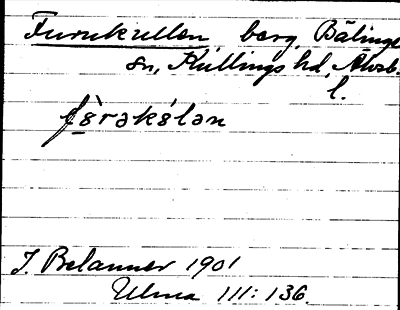 Furukullen berg, Bälinge
sn, Kullings hd, Älvsb.
l.
I. Belanner 1901
Ulma 111:136.